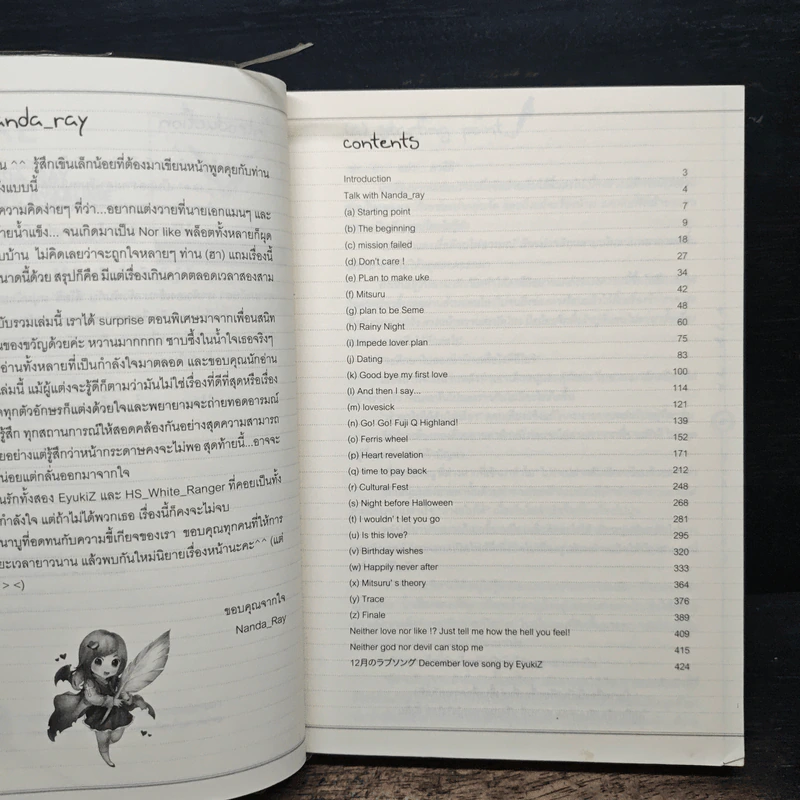 anda_ray
น ^^ รู้สึกเขินเล็กน้อยที่ต้องมาเขียนหน้าพูดคุยกับท่าน
งแบบนี้
ความคิดง่ายๆ ที่ว่า...อยากแต่งวายที่นายเอกแมนๆ และ
ายน้ำแข็ง... จนเกิดมาเป็น Nor like พล็อตทั้งหลายก็ผุด
บบ้าน ไม่คิดเลยว่าจะถูกใจหลายๆ ท่าน (ฮา) แถมเรื่องนี้
นาดนี้ด้วย สรุปก็คือ มีแต่เรื่องเกินคาดตลอดเวลาสองสาม
บับรวมเล่มนี้ เราได้ surprise ตอนพิเศษมาจากเพื่อนสนิท
นของขวัญด้วยค่ะ หวานมากกกก ซาบซึ้งในน้ำใจเธอจริงๆ
อ่านทั้งหลายที่เป็นกำลังใจมาตลอด และขอบคุณนักอ่าน
ล่มนี้ แม้ผู้แต่งจะรู้ดีก็ตามว่ามันไม่ใช่เรื่องที่ดีที่สุดหรือเรื่อง
ตทุกตัวอักษรก็แต่งด้วยใจและพยายามจะถ่ายทอดอารมณ์
รู้สึก ทุกสถานการณ์ให้สอดคล้องกันอย่างสุดความสามารถ
ยอย่างแต่รู้สึกว่าหน้ากระดาษคงจะไม่พอ สุดท้ายนี้...อาจจะ
น่อยแต่กลั่นออกมาจากใจ
นรักทั้งสอง EyukiZ และ HS_White_Ranger ที่คอยเป็นทั้ง
กำลังใจ แต่ถ้าไม่ได้พวกเธอ เรื่องนี้ก็คงจะไม่จบ
นาบูที่อดทนกับความขี้เกียจของเรา ขอบคุณทุกคนที่ให้การ
ยะเวลายาวนาน แล้วพบกันใหม่นิยายเรื่องหน้านะคะ^^ (แต่
> <)
ขอบคุณจากใจ
Nanda_Ray
contents
Introduction 3
Talk with Nanda_ray 4
(a) Starting point 7
(b) The beginning 9
(c) mission failed 18
(d) Don't care ! 27
(e) PLan to make uke 34
(f) Mitsuru 42
(g) plan to be Seme 48
(h) Rainy Night 60
(i) Impede lover plan 75
(j) Dating 83
(k) Good bye my first love 100
(l) And then I say... 114
(m) lovesick 121
(n) Go! Go! Fuji Q Highland! 139
(o) Ferris wheel 152
(p) Heart revelation 171
(q) time to pay back 212
(r) Cultural Fest 248
(s) Night before Halloween 268
(t) I wouldn' t let you go 281
(u) Is this love? 295
(v) Birthday wishes 320
(w) Happily never after 333
(x) Mitsuru' s theory 364
(y) Trace 376
(z) Finale 389
Neither love nor like !? Just tell me how the hell you feel! 409
Neither god nor devil can stop me 415
12月のラブソング December love song by EyukiZ 424